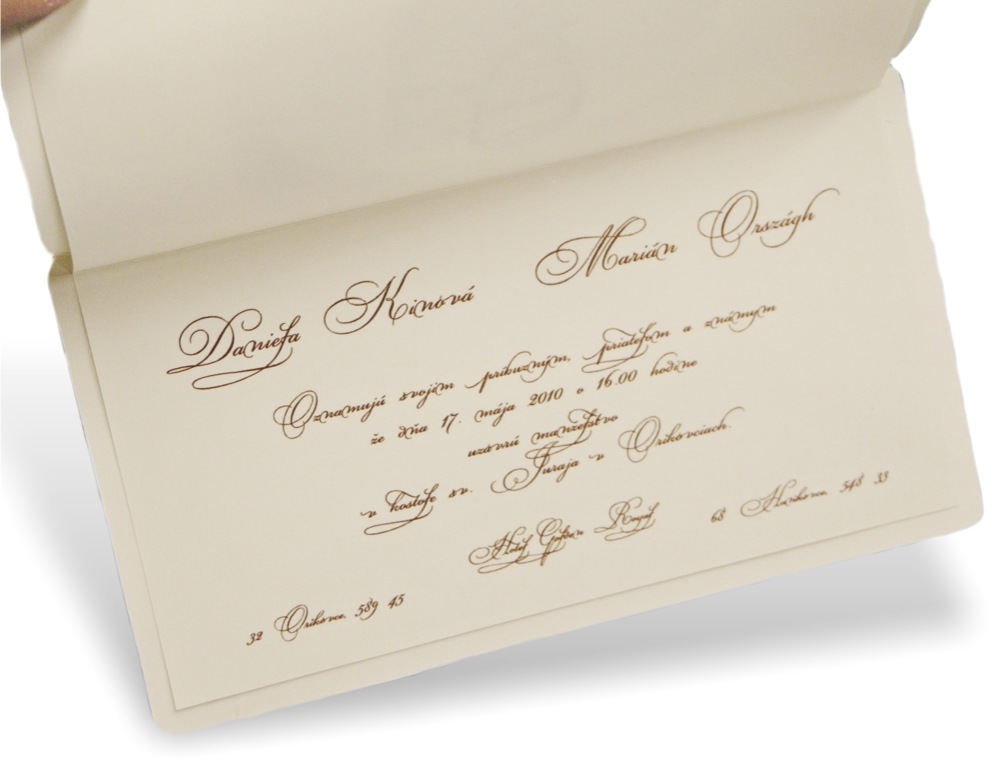 Daniela Kinová Marián Országh
Oznamujú svojim príbuzným, priateľom a známym
že dňa 17. mája 2010 o 16.00 hodine
uzavrú manželstvo
v kostole sv. Juraja v Orikovciach.
Hotel Royal 68 548 33
32 Orikovce, 589 45